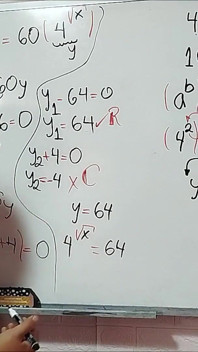 = 60(4^√x)
y
60y
6=0
y
+4)=0
y₁-64=0
y₁=64 ✓ R
y₂+4=0
y₂=-4 × C
y=64
4^√x = 64
4
1
(a^b
(4^2)
y